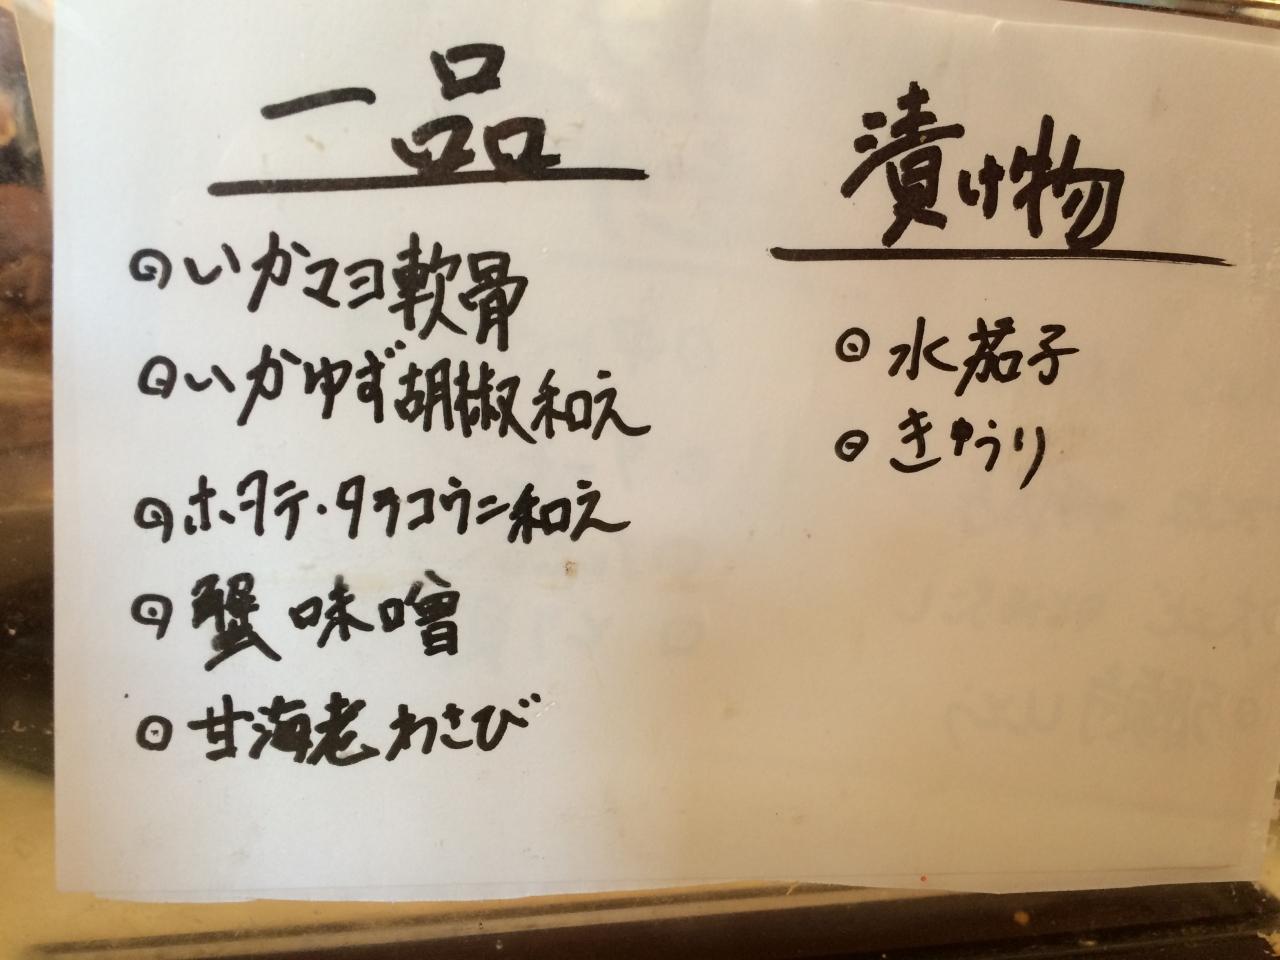 一品
◎いかマヨ軟骨
◎いかゆず胡椒和え
◎ホタテ・タラコウニ和え
◎蟹味噌
◎甘海老わさび
漬け物
◎水茄子
◎きゅうり